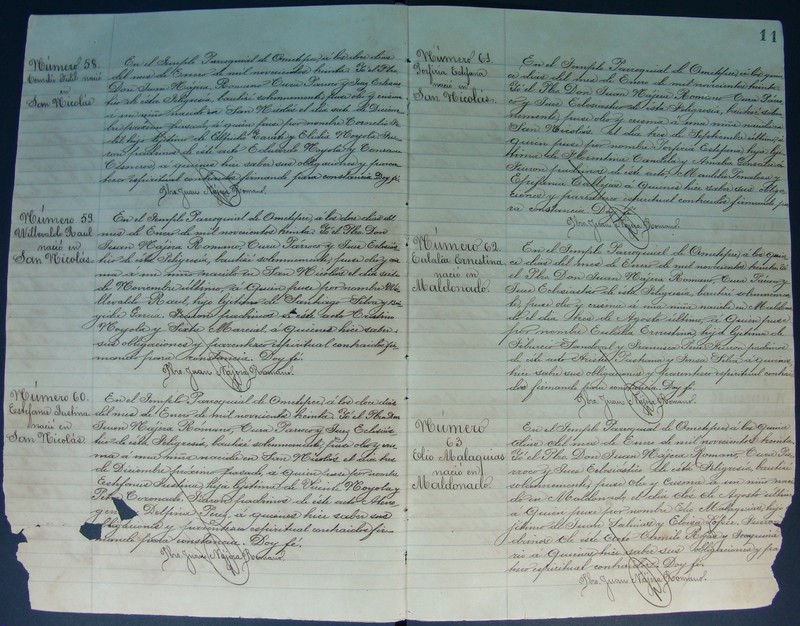 11
Número 58.
nació
en
San Nicolás
En el Templo Paroquial de Ometepec, á los dos dias
del mes de Enero de mil novecientos treinta. Yó el Pbo.
Don Juan Nájera Romano, Cura Párroco y Juez Eclesiás-
tico de esta Feligresía, bauticé solemnemente, puse oleo y crisma
á un niño nacido en San Nicolás el dia
próximo pasado, á quien puse por nombre Cornelio
hijo legítimo de y Noyola. Fue-
ron padrinos de este acto Noyola y
á quienes hice saber sus obligaciones y paren-
tesco espiritual contraido firmando para constancia. Doy fé.
Pbro. Juan Nájera Romano.
Número 59.
Raul
nació en
San Nicolás.
En el Templo Paroquial de Ometepec, á los dos dias del
mes de Enero de mil novecientos treinta. Yó el Pbo. Don
Juan Nájera Romano, Cura Párroco y Juez Eclesiás-
tico de esta Feligresía, bauticé solemnemente, puse oleo y cris-
ma á un niño nacido en San Nicolás el dia seis
de Noviembre último, á quien puse por nombre
Raul, hijo legítimo de Santiago Silva y
García. Fueron padrinos de este acto
Noyola y Marcial, á quienes hice saber
sus obligaciones y parentesco espiritual contraido fir-
mando para constancia. Doy fé.
Pbro. Juan Nájera Romano.
Número 60.
Justina
nació en
San Nicolás.
En el Templo Paroquial de Ometepec, á los dos dias
del mes de Enero de mil novecientos treinta. Yó el Pbo. Don
Juan Nájera Romano, Cura Párroco y Juez Eclesiás-
tico de esta Feligresía, bauticé solemnemente, puse oleo y cris-
ma á una niña nacida en San Nicolás el dia tres
de Diciembre próximo pasado, á quien puse por nombre
Justina, hija legítima de Noyola y
Coronado. Fueron padrinos de este acto
Delfina Perez, á quienes hice saber sus
obligaciones y parentesco espiritual contraido fir-
mando para constancia. Doy fé.
Pbro. Juan Nájera Romano.
Número 61.
Porfiria Estefana
nació en
San Nicolás.
En el Templo Paroquial de Ometepec, á los quin-
ce dias del mes de Enero de mil novecientos treinta.
Yó el Pbo. Don Juan Nájera Romano, Cura Párro-
co y Juez Eclesiástico de esta Feligresía, bauticé solem-
nemente, puse oleo y crisma á una niña nacida en
San Nicolás el dia tres de Septiembre último, á
quien puse por nombre Porfiria Estefana, hija legí-
tima de Florentino y Amalia
Fueron padrinos de este acto y
Epifania á quienes hice saber sus obliga-
ciones y parentesco espiritual contraido firmando pa-
ra constancia. Doy fé.
Pbro. Juan Nájera Romano.
Número 62
Eulalia Ernestina
nació en
Maldonado.
En el Templo Paroquial de Ometepec, á los quin-
ce dias del mes de Enero de mil novecientos treinta. Yó
el Pbo. Don Juan Nájera Romano, Cura Párroco y
Juez Eclesiástico de esta Feligresía, bauticé solemnemen-
te, puse oleo y crisma á una niña nacida en Maldona-
do el dia tres de Agosto último, á quien puse
por nombre Eulalia Ernestina, hija legítima de
Sandoval y Francisca Fueron padrinos
de este acto y Silva, á quienes
hice saber sus obligaciones y parentesco espiritual contrai-
do firmando para constancia. Doy fé.
Pbro. Juan Nájera Romano.
Número
63
Elio Malaquias
nació en
Maldonado.
En el Templo Paroquial de Ometepec, á los quince
dias del mes de Enero de mil novecientos treinta.
Yó el Pbo. Don Juan Nájera Romano, Cura Pá-
rroco y Juez Eclesiástico de esta Feligresía, bauticé
solemnemente, puse oleo y crisma á un niño naci-
do en Maldonado el dia dos de Agosto último
á quien puse por nombre Elio Malaquias, hijo le-
gítimo de Juan Salinas y Elvira López. Fueron pa-
drinos de este acto Rojas y
á quienes hice saber sus obligaciones y paren-
tesco espiritual contraido. Doy fé.
Pbro. Juan Nájera Romano.